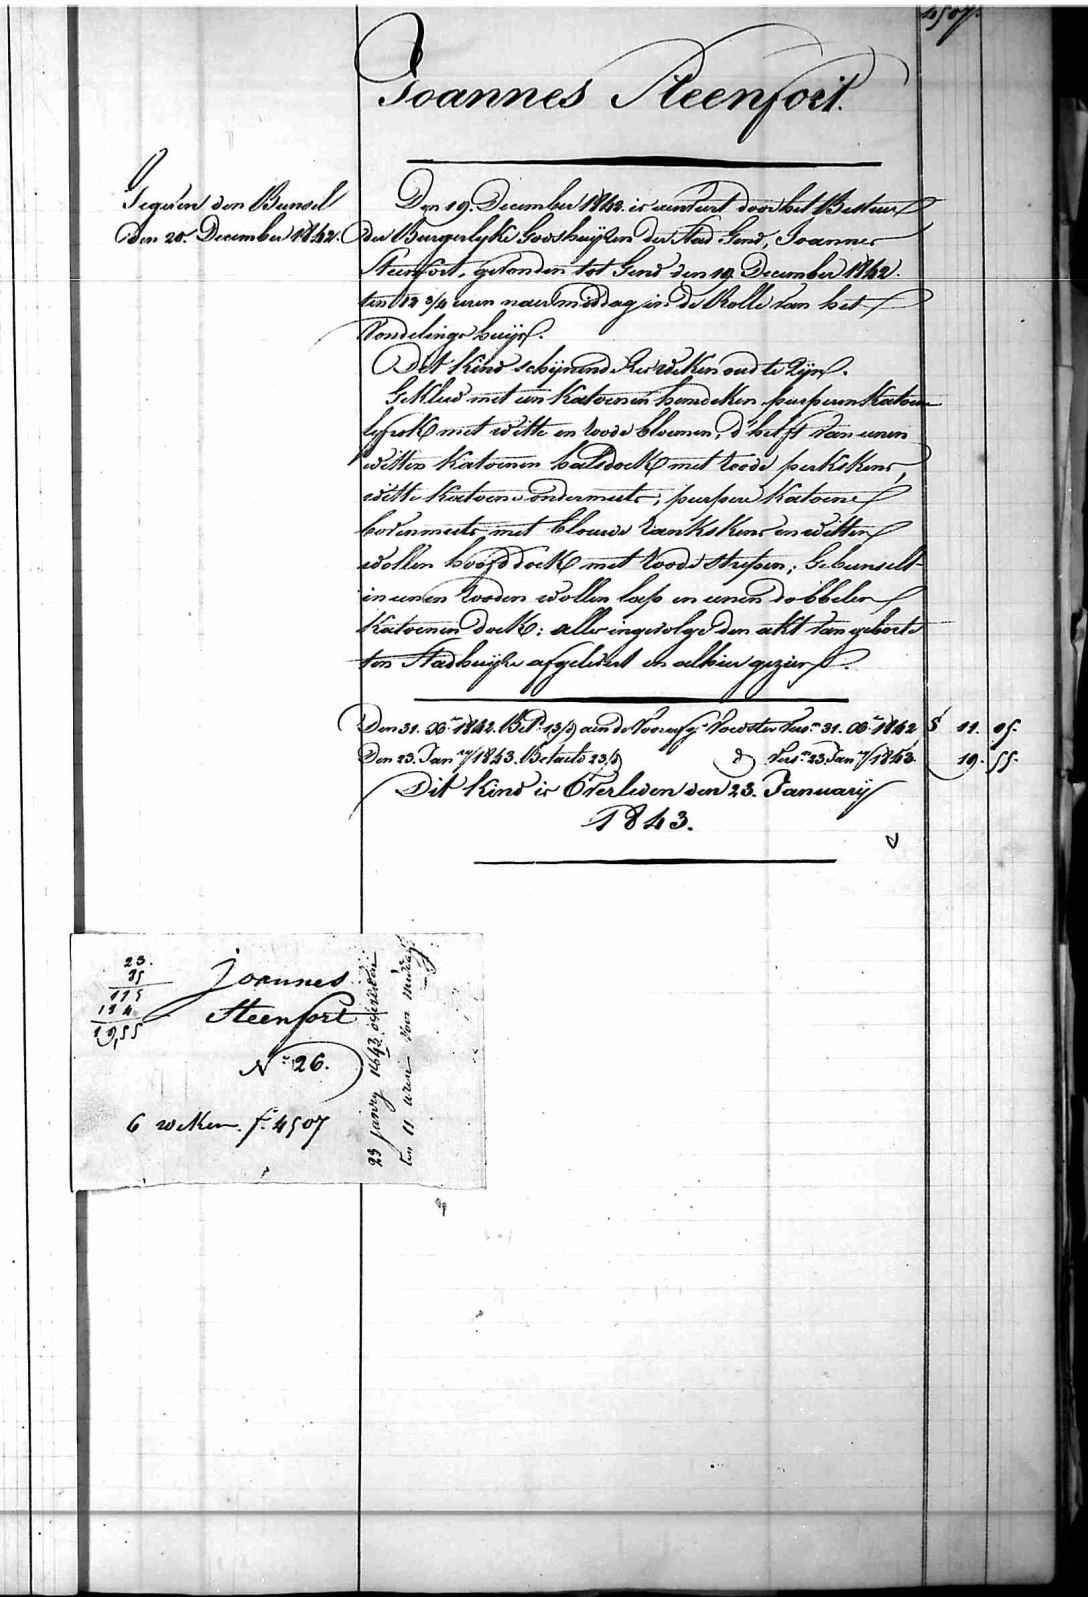 4507.
Joannes Steenfort.
Gegeven den Bunsel
den 20. December 1842.
Den 19. December 1842. is aenveirt door het Bestuur
der Burgerlyke Godshuyzen der Stad Gend, Joannes
Steenfort, gevonden tot Gend den 19. December 1842.
ten 12 3/4 uren naer middag in de Rolle van het
Vondelings huys.
Dit kind schynende zes weken oud te zyn.
Gekleed met een katoenen hemdeken purperen katoene
lyfrok met witte en roode bloemen, d'helft van eenen
witten katoenen halsdoek met roode perkskens,
witte katoene ondermuts, purpere katoene
bovenmuts met blauwe rankskens en witten
wollen hoofddoek met roode strepen; Gebunselt
in eenen rooden wollen lap en eenen dobbelen
katoenen doek: alles ingevolge den akt van geboorte
ten Stadhuyze afgelevert en alhier gezien.
Den 31. Xb.er 1842. Bet. 13/d aen de Voorzg. Voedster 31. Xb.er 1842 § 11. 05.
Den 23. Jan.ry 1843. Betaelt 23/d d 23. Jan.ry 1843. 19. 55.
Dit kind is Overleden den 23. January
1843.
23.
85
115
184
19,55
Joannes
Steenfort
N.r 26.
6 weken. f.o 4507
23 janry 1843 overleden
ten 11 uren voor middag